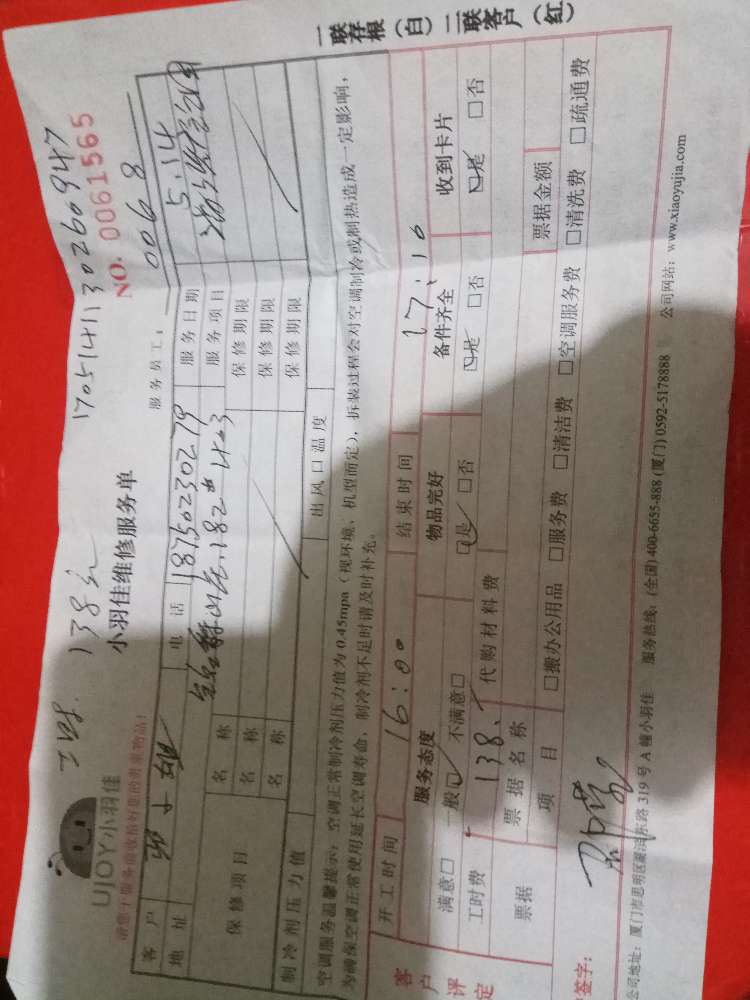 一联存根（白）二联客户（红）
1705141130260947
NO. 0061565
138元
UJOY小羽佳
小羽佳维修服务单
服务员工： 0068
请您于服务前收拾好您的贵重物品！
客户 小姐 电话 18750230279 服务日期 5.14
地址 182# 423 服务项目
保修项目 名称 保修期限
名称 保修期限
名称 保修期限
制冷剂压力值 出风口温度
空调服务温馨提示：空调正常制冷剂压力值为0.45mpa（视环境、机型而定），拆装过程会对空调制冷或制热造成一定影响，
为确保空调正常使用延长空调寿命，制冷剂不足时请及时补充。
客户评定
开工时间 16:00 结束时间 17:10
服务态度 物品完好 备件齐全 收到卡片
满意□ 一般□ 不满意□ □是 □否 □是 □否 □是 □否
工时费 138. 代购材料费
票据 票据名称 票据金额
项目 □搬办公用品 □服务费 □清洁费 □空调服务费 □清洗费 □疏通费
签字：
公司地址：厦门市思明区湖滨东路319号A幢小羽佳 服务热线：(全国) 400-6655-888 (厦门) 0592-5178888 公司网站：www.xiaoyujia.com